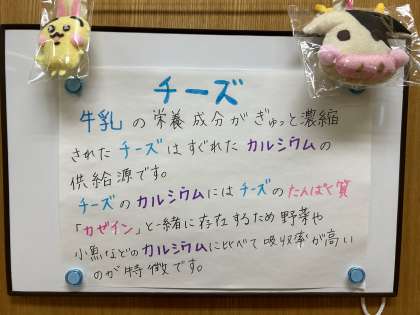 チーズ
牛乳の栄養成分がぎゅっと濃縮
されたチーズはすぐれたカルシウムの
供給源です。
チーズのカルシウムにはチーズのたんぱく質
「カゼイン」と一緒に存在するため野菜や
小魚などのカルシウムに比べて吸収率が高い
のが特徴です。